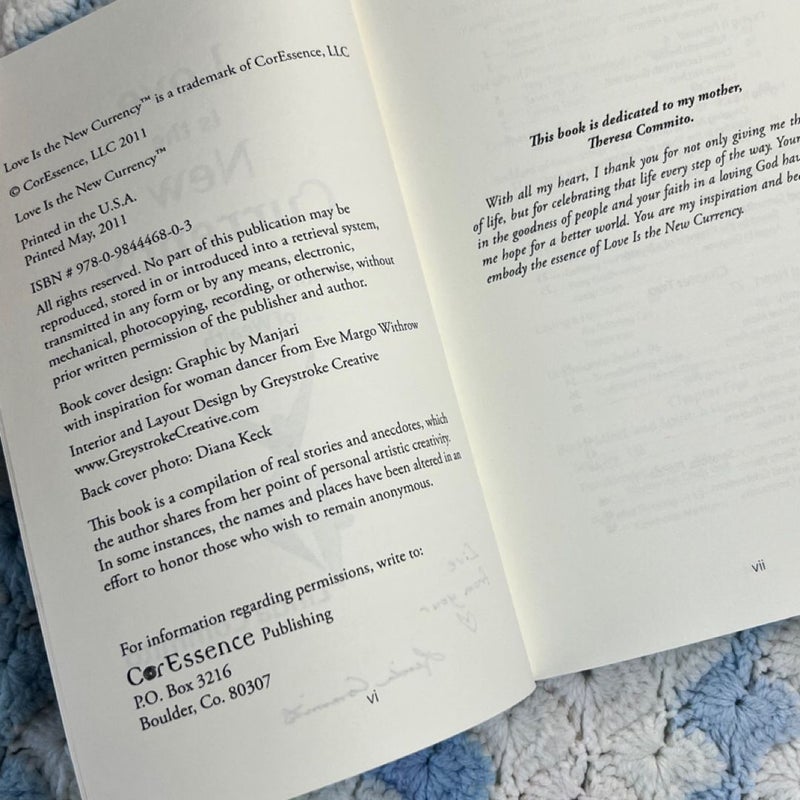 Love Is the New Currency™ is a trademark of CorEssence, LLC
© CorEssence, LLC 2011
Love Is the New Currency™
Printed in the U.S.A.
Printed May, 2011
ISBN # 978-0-9844468-0-3
All rights reserved. No part of this publication may be
reproduced, stored in or introduced into a retrieval system,
transmitted in any form or by any means, electronic,
mechanical, photocopying, recording, or otherwise, without
prior written permission of the publisher and author.
Book cover design: Graphic by Manjari
with inspiration for woman dancer from Eve Margo Withrow
Interior and Layout Design by Greystroke Creative
www.GreystrokeCreative.com
Back cover photo: Diana Keck
This book is a compilation of real stories and anecdotes, which
the author shares from her point of personal artistic creativity.
In some instances, the names and places have been altered in an
effort to honor those who wish to remain anonymous.
For information regarding permissions, write to:
CorEssence Publishing
P.O. Box 3216
Boulder, Co. 80307
vi
This book is dedicated to my mother,
Theresa Commito.
With all my heart, I thank you for not only giving me th
of life, but for celebrating that life every step of the way. Your
in the goodness of people and your faith in a loving God hav
me hope for a better world. You are my inspiration and bec
embody the essence of Love Is the New Currency.
vii